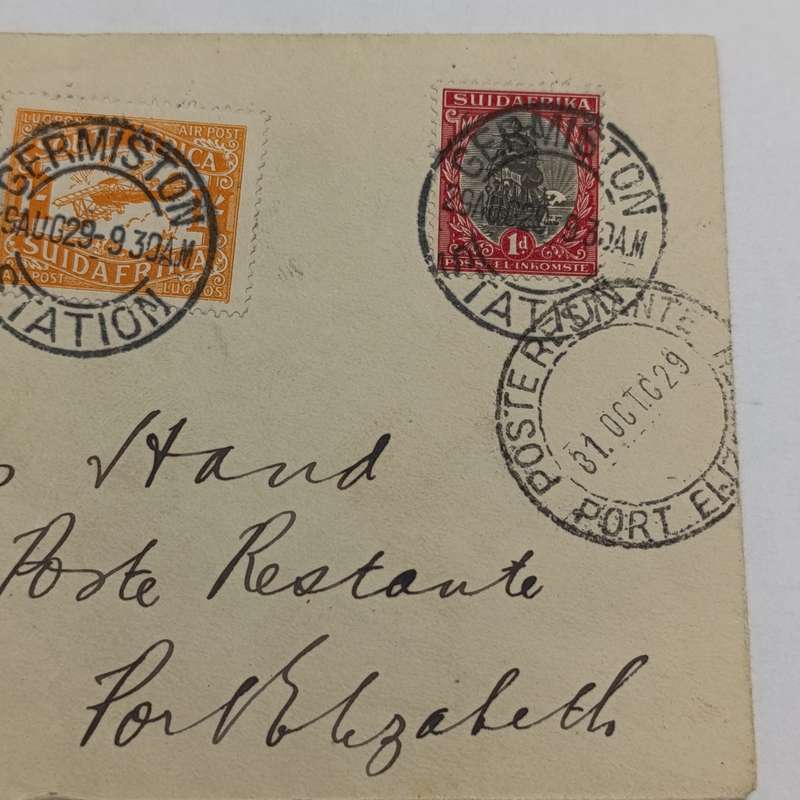 LUGPOS AIR POST
SUIDAFRIKA
AIR POST LUGPOS
GERMISTON
9AUG29-9.30AM
STATION
SUIDAFRIKA
1d
POSSEEL-INKOMSTE
GERMISTON
9AUG29-9.30AM
STATION
POSTE RESTANTE
31 OCT 29
PORT ELIZ
Hand
Poste Restante
Port Elizabeth